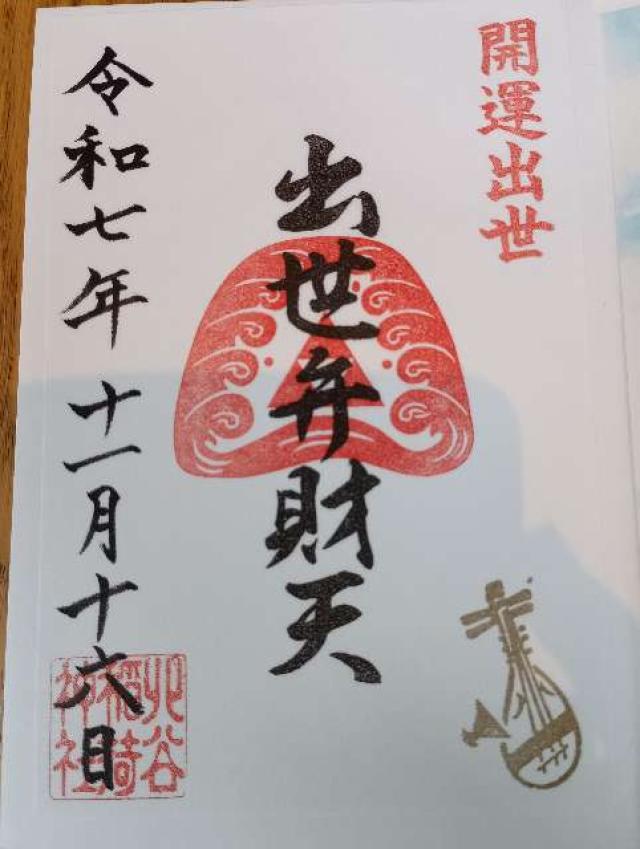 開運出世
出世弁財天
令和七年十一月十六日
北谷
稲荷
神社